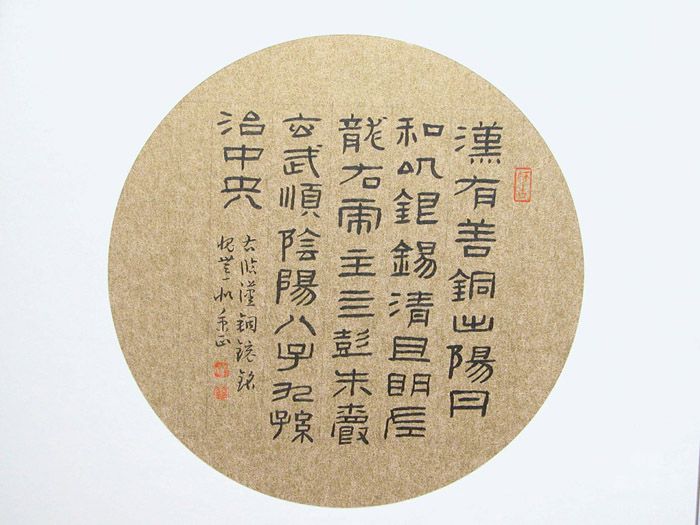 漢有善銅出陽丹
和以銀錫清且明左
龍右虎主三彭朱爵
玄武順陰陽八子九孫
治中央
右臨漢銅鏡銘